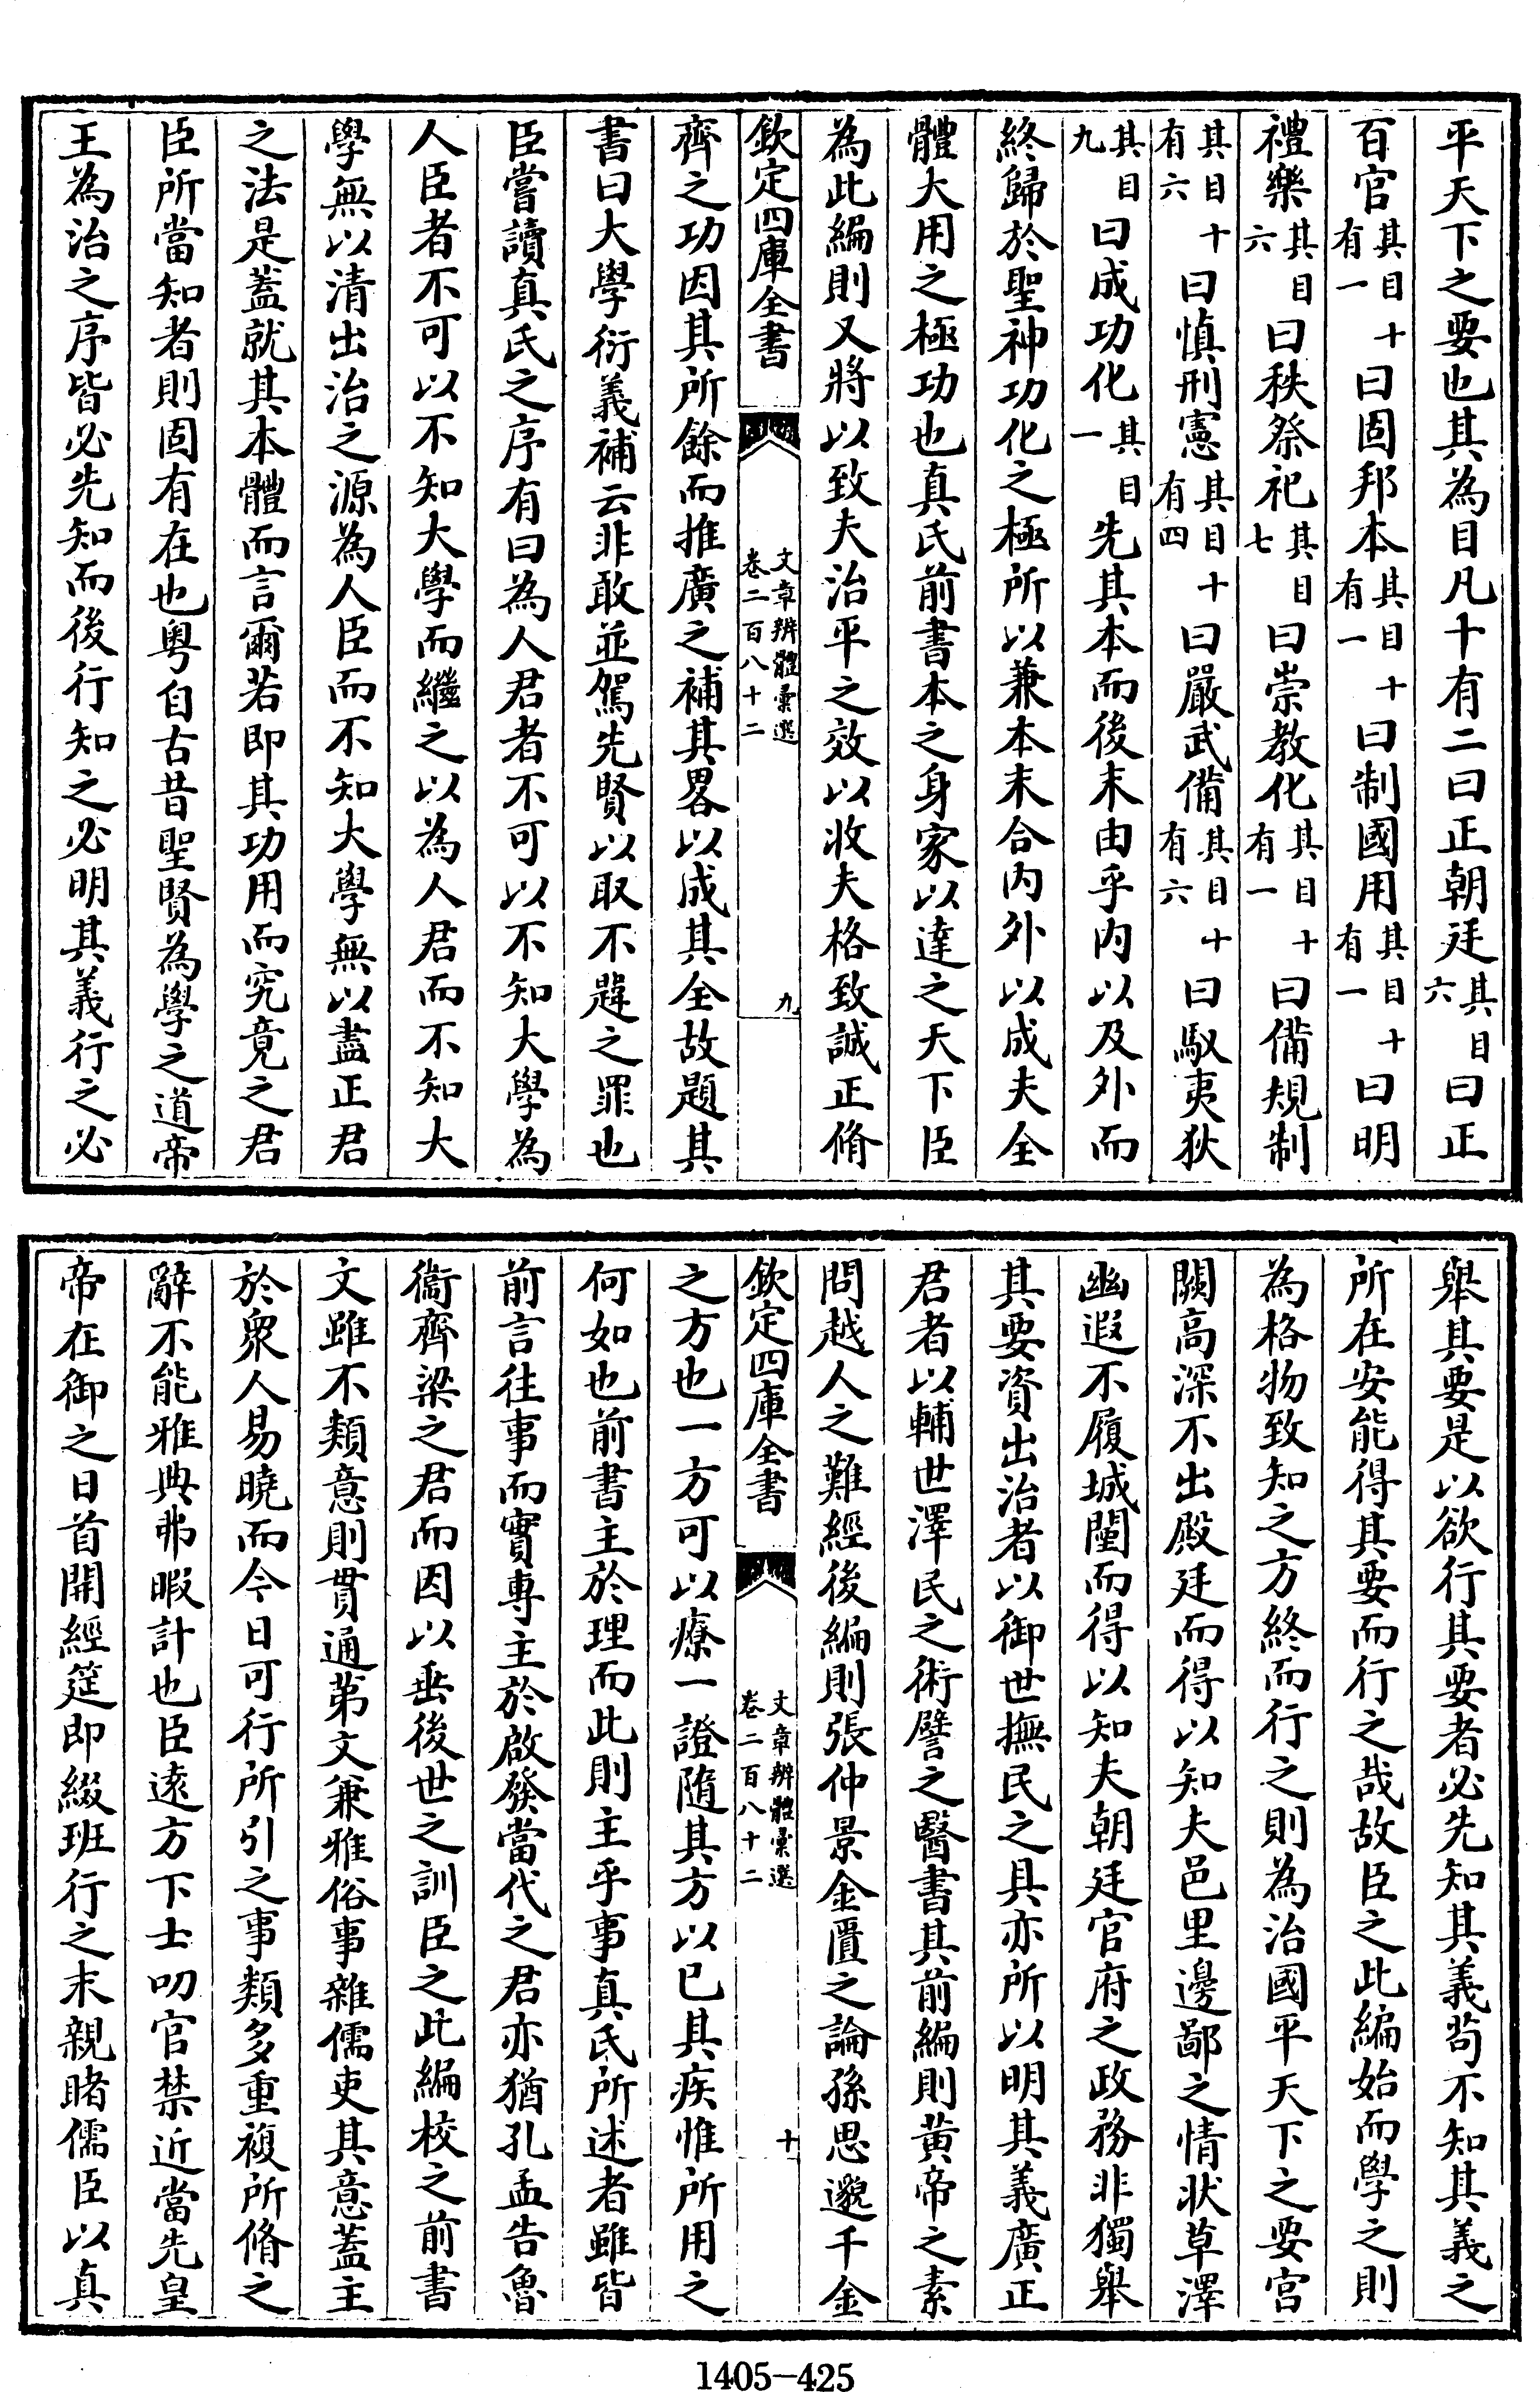 平天下之要也其為目凡十有二曰正朝廷其目六曰正
百官其目十有一曰固邦本其目十有一曰制國用其目十有一曰明
禮樂其目六曰秩祭祀其目七曰崇教化其目十有一曰備規制
其目十有六曰慎刑憲其目十有四曰嚴武備其目十有六曰馭夷狄
其目九曰成功化其目一先其本而後末由乎内以及外而
終歸於聖神功化之極所以兼本末合内外以成夫全
體大用之極功也真氏前書本之身家以達之天下臣
為此編則又將以致夫治平之效以收夫格致誠正脩
欽定四庫全書
文章辨體彙選
卷二百八十二
九
齊之功因其所餘而推廣之補其畧以成其全故題其
書曰大學衍義補云非敢並駕先賢以取不韙之罪也
臣嘗讀真氏之序有曰為人君者不可以不知大學為
人臣者不可以不知大學而繼之以為人君而不知大
學無以清出治之源為人臣而不知大學無以盡正君
之法是蓋就其本體而言爾若即其功用而究竟之君
臣所當知者則固有在也粤自古昔聖賢為學之道帝
王為治之序皆必先知而後行知之必明其義行之必
舉其要是以欲行其要者必先知其義茍不知其義之
所在安能得其要而行之哉故臣之此編始而學之則
為格物致知之方終而行之則為治國平天下之要宫
闕高深不出殿廷而得以知夫邑里邊鄙之情狀草澤
幽遐不履城闉而得以知夫朝廷官府之政務非獨舉
其要資出治者以御世撫民之具亦所以明其義廣正
君者以輔世澤民之術譬之醫書其前編則黄帝之素
問越人之難經後編則張仲景金匱之論孫思邈千金
欽定四庫全書
文章辨體彙選
卷二百八十二
十
之方也一方可以療一證隨其方以已其疾惟所用之
何如也前書主於理而此則主乎事真氏所述者雖皆
前言往事而實專主於啟發當代之君亦猶孔孟告魯
衞齊梁之君而因以垂後世之訓臣之此編校之前書
文雖不類意則貫通第文兼雅俗事雜儒吏其意蓋主
於衆人易曉而今日可行所引之事類多重複所脩之
辭不能雅典弗暇計也臣逺方下士叨官禁近當先皇
帝在御之日首開經筵即綴班行之末親睹儒臣以真
1405-425